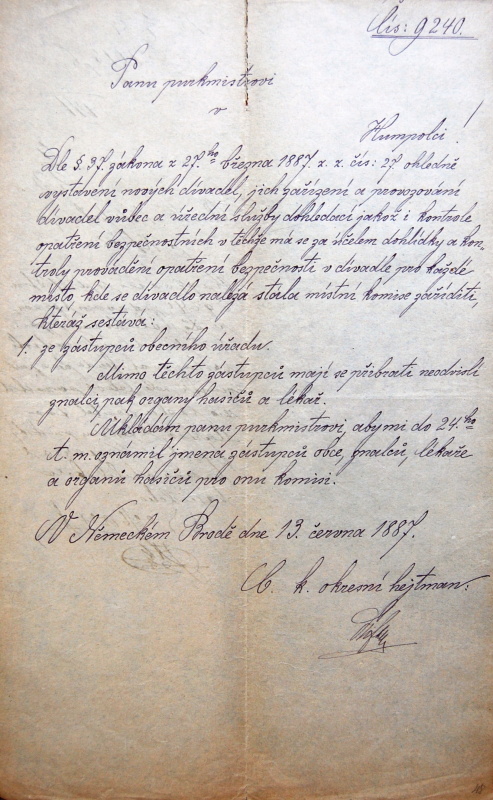 Čís: 9240.
Panu purkmistrovi
v
Humpolci!
Dle §. 37. zákona z 27.ho března 1887 z. z. čís: 27. ohledně
vystavení nových divadel, jich zařízení a provozování
divadel vůbec a úřední služby dohledací jakož i kontrole
opatření bezpečnostních v těchže má se za účelem dohlídky a kon-
troly provádění opatření bezpečnosti v divadle pro každé
místo kde se divadlo nalézá stálá místní komise zříditi,
kteráž sestává:
1. ze zástupců obecního úřadu.
Mimo těchto zástupců mají se přibrati neodvislí
znalci, pak organy hasičů a lékař.
Ukládám panu purkmistrovi, aby mi do 24.ho
t. m. oznámil jména zástupců obce, znalců, lékaře
a organů hasičů pro onu komisi.
V Německém Brodě dne 13. června 1887.
C. k. okresní hejtman: